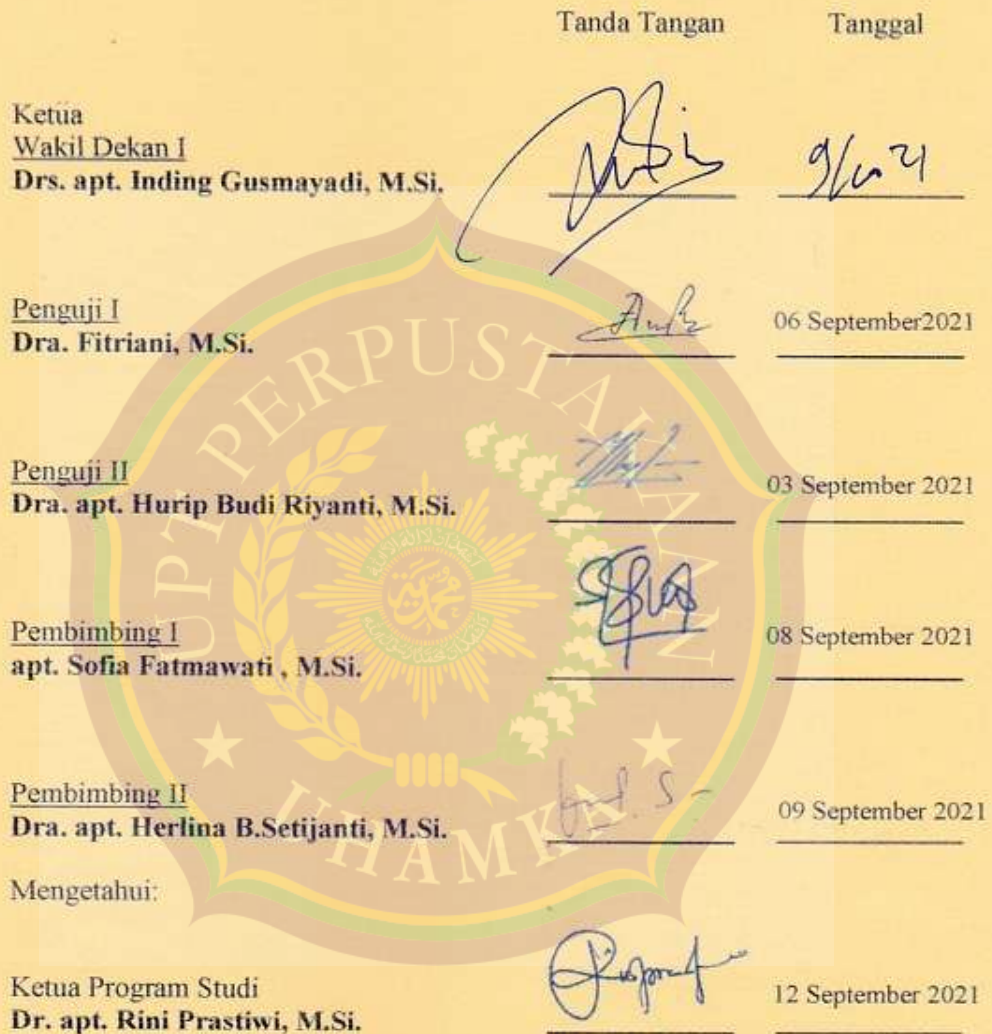 Tanda Tangan Tanggal
Ketua
Wakil Dekan I
Drs. apt. Inding Gusmayadi, M.Si.
Penguji I
Dra. Fitriani, M.Si. 06 September2021
Penguji II
Dra. apt. Hurip Budi Riyanti, M.Si. 03 September 2021
Pembimbing I
apt. Sofia Fatmawati , M.Si. 08 September 2021
Pembimbing II
Dra. apt. Herlina B.Setijanti, M.Si. 09 September 2021
Mengetahui:
Ketua Program Studi
Dr. apt. Rini Prastiwi, M.Si. 12 September 2021
UPT PERPUSTAKAAN
UHAMKA